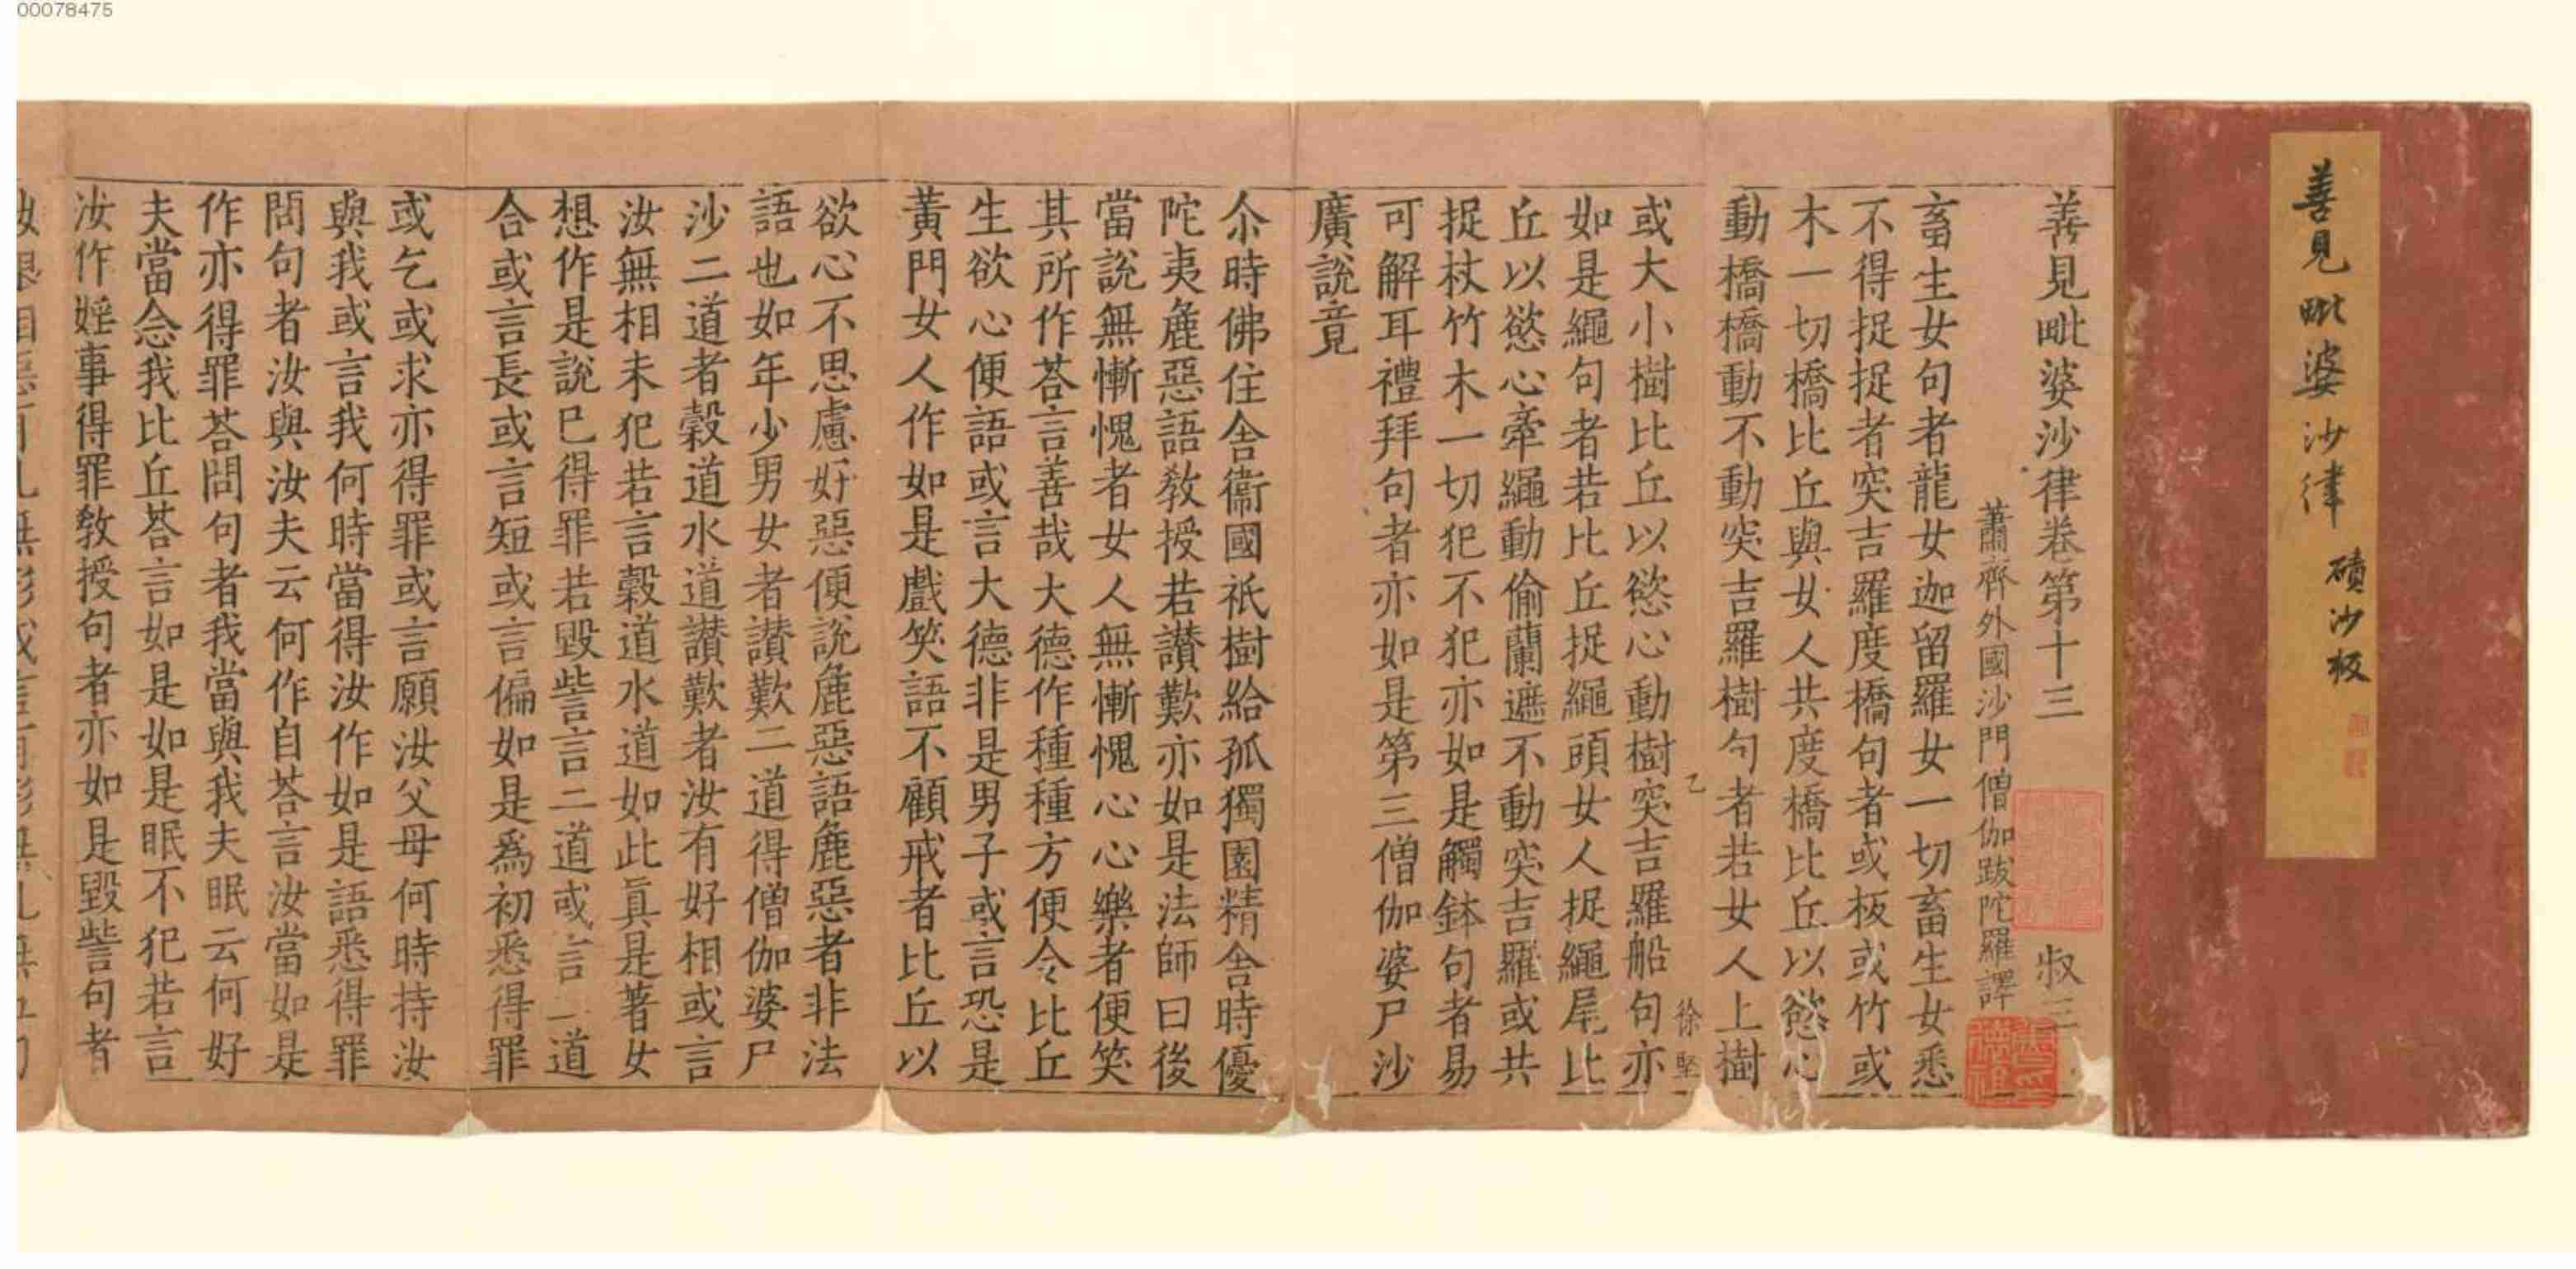 00078475
善見毗婆沙律 磧沙板
善見毗婆沙律卷第十三 叔三
蕭齊外國沙門僧伽跋陀羅譯
畜生女句者龍女迦留羅女一切畜生女悉
不得捉捉者突吉羅度橋句者或板或竹或
木一切橋比丘與女人共度橋比丘以慾心
動橋橋動不動突吉羅樹句者若女人上樹
乙 徐堅
或大小樹比丘以慾心動樹突吉羅船句亦
如是繩句者若比丘捉繩頭女人捉繩尾比
丘以慾心牽繩動偷蘭遮不動突吉羅或共
捉杖竹木一切犯不犯亦如是觸鉢句者易
可解耳禮拜句者亦如是第三僧伽婆尸沙
廣說竟
尒時佛住舍衞國祇樹給孤獨園精舍時優
陀夷麁惡語教授若讃歎亦如是法師曰後
當說無慚愧者女人無慚愧心心樂者便笑
其所作荅言善哉大德作種種方便令比丘
生欲心便語或言大德非是男子或言恐是
黃門女人作如是戲笑語不顧戒者比丘以
欲心不思慮好惡便說麁惡語麁惡者非法
語也如年少男女者讃歎二道得僧伽婆尸
沙二道者穀道水道讃歎者汝有好相或言
汝無相未犯若言穀道水道如此真是著女
想作是說已得罪若毀訾言二道或言一道
合或言長或言短或言偏如是爲初悉得罪
或乞或求亦得罪或言願汝父母何時持汝
與我或言我何時當得汝作如是語悉得罪
問句者汝與汝夫云何作自荅言汝當如是
作亦得罪荅問句者我當與我夫眠云何好
夫當念我比丘荅言如是如是眠不犯若言
汝作婬事得罪教授句者亦如是毀訾句者